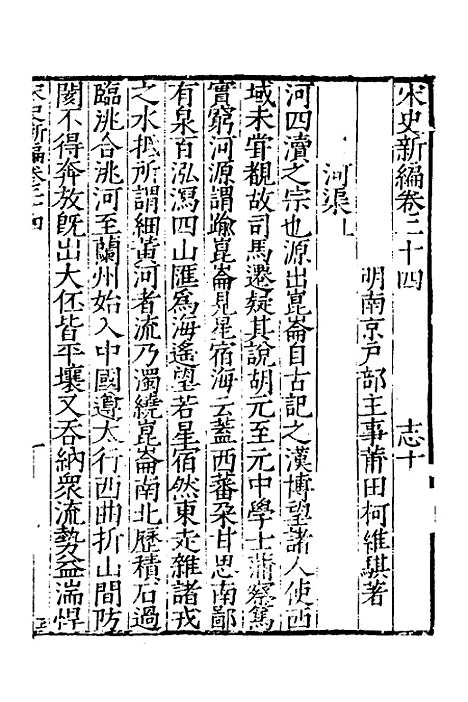 宋史新編卷二十四　志十
明南京戶部主事莆田柯維騏著
河渠上
河四瀆之宗也源出崑崙自古記之漢博望諸人使西
域未嘗觀故司馬遷疑其說胡元至元中學士蒲察篤
實窮河源謂踰崑崙見星宿海云蓋西蕃朶甘思南鄙
有泉百泓瀉四山匯爲海遙望若星宿然東走雜諸戎
之水抵所謂細黃河者流乃濁繞崑崙南北歷積石過
臨洮合洮河至蘭州始入中國遵太行西曲折山間防
閡不得奔放旣出大伾皆平壤又吞納衆流勢益湍悍
宋史新編卷二十四
一